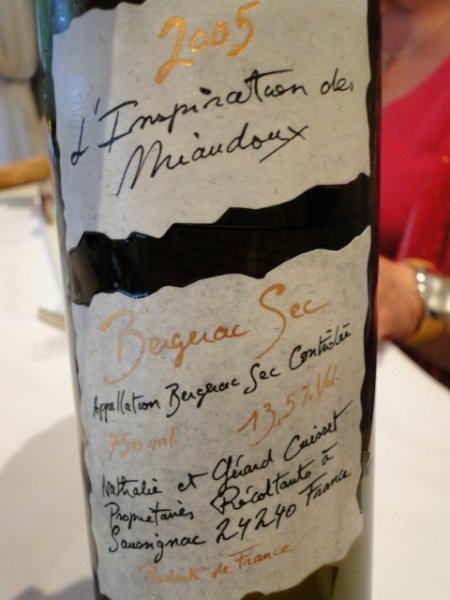 2005
L'Inspiration des
Miaudoux
Bergerac Sec
Appellation Bergerac Sec Contrôlée
750 ml 13,5% Vol.
Nathalie et Gérard Cuisset
Propriétaires Récoltants à
Saussignac 24240 France
Produit de France